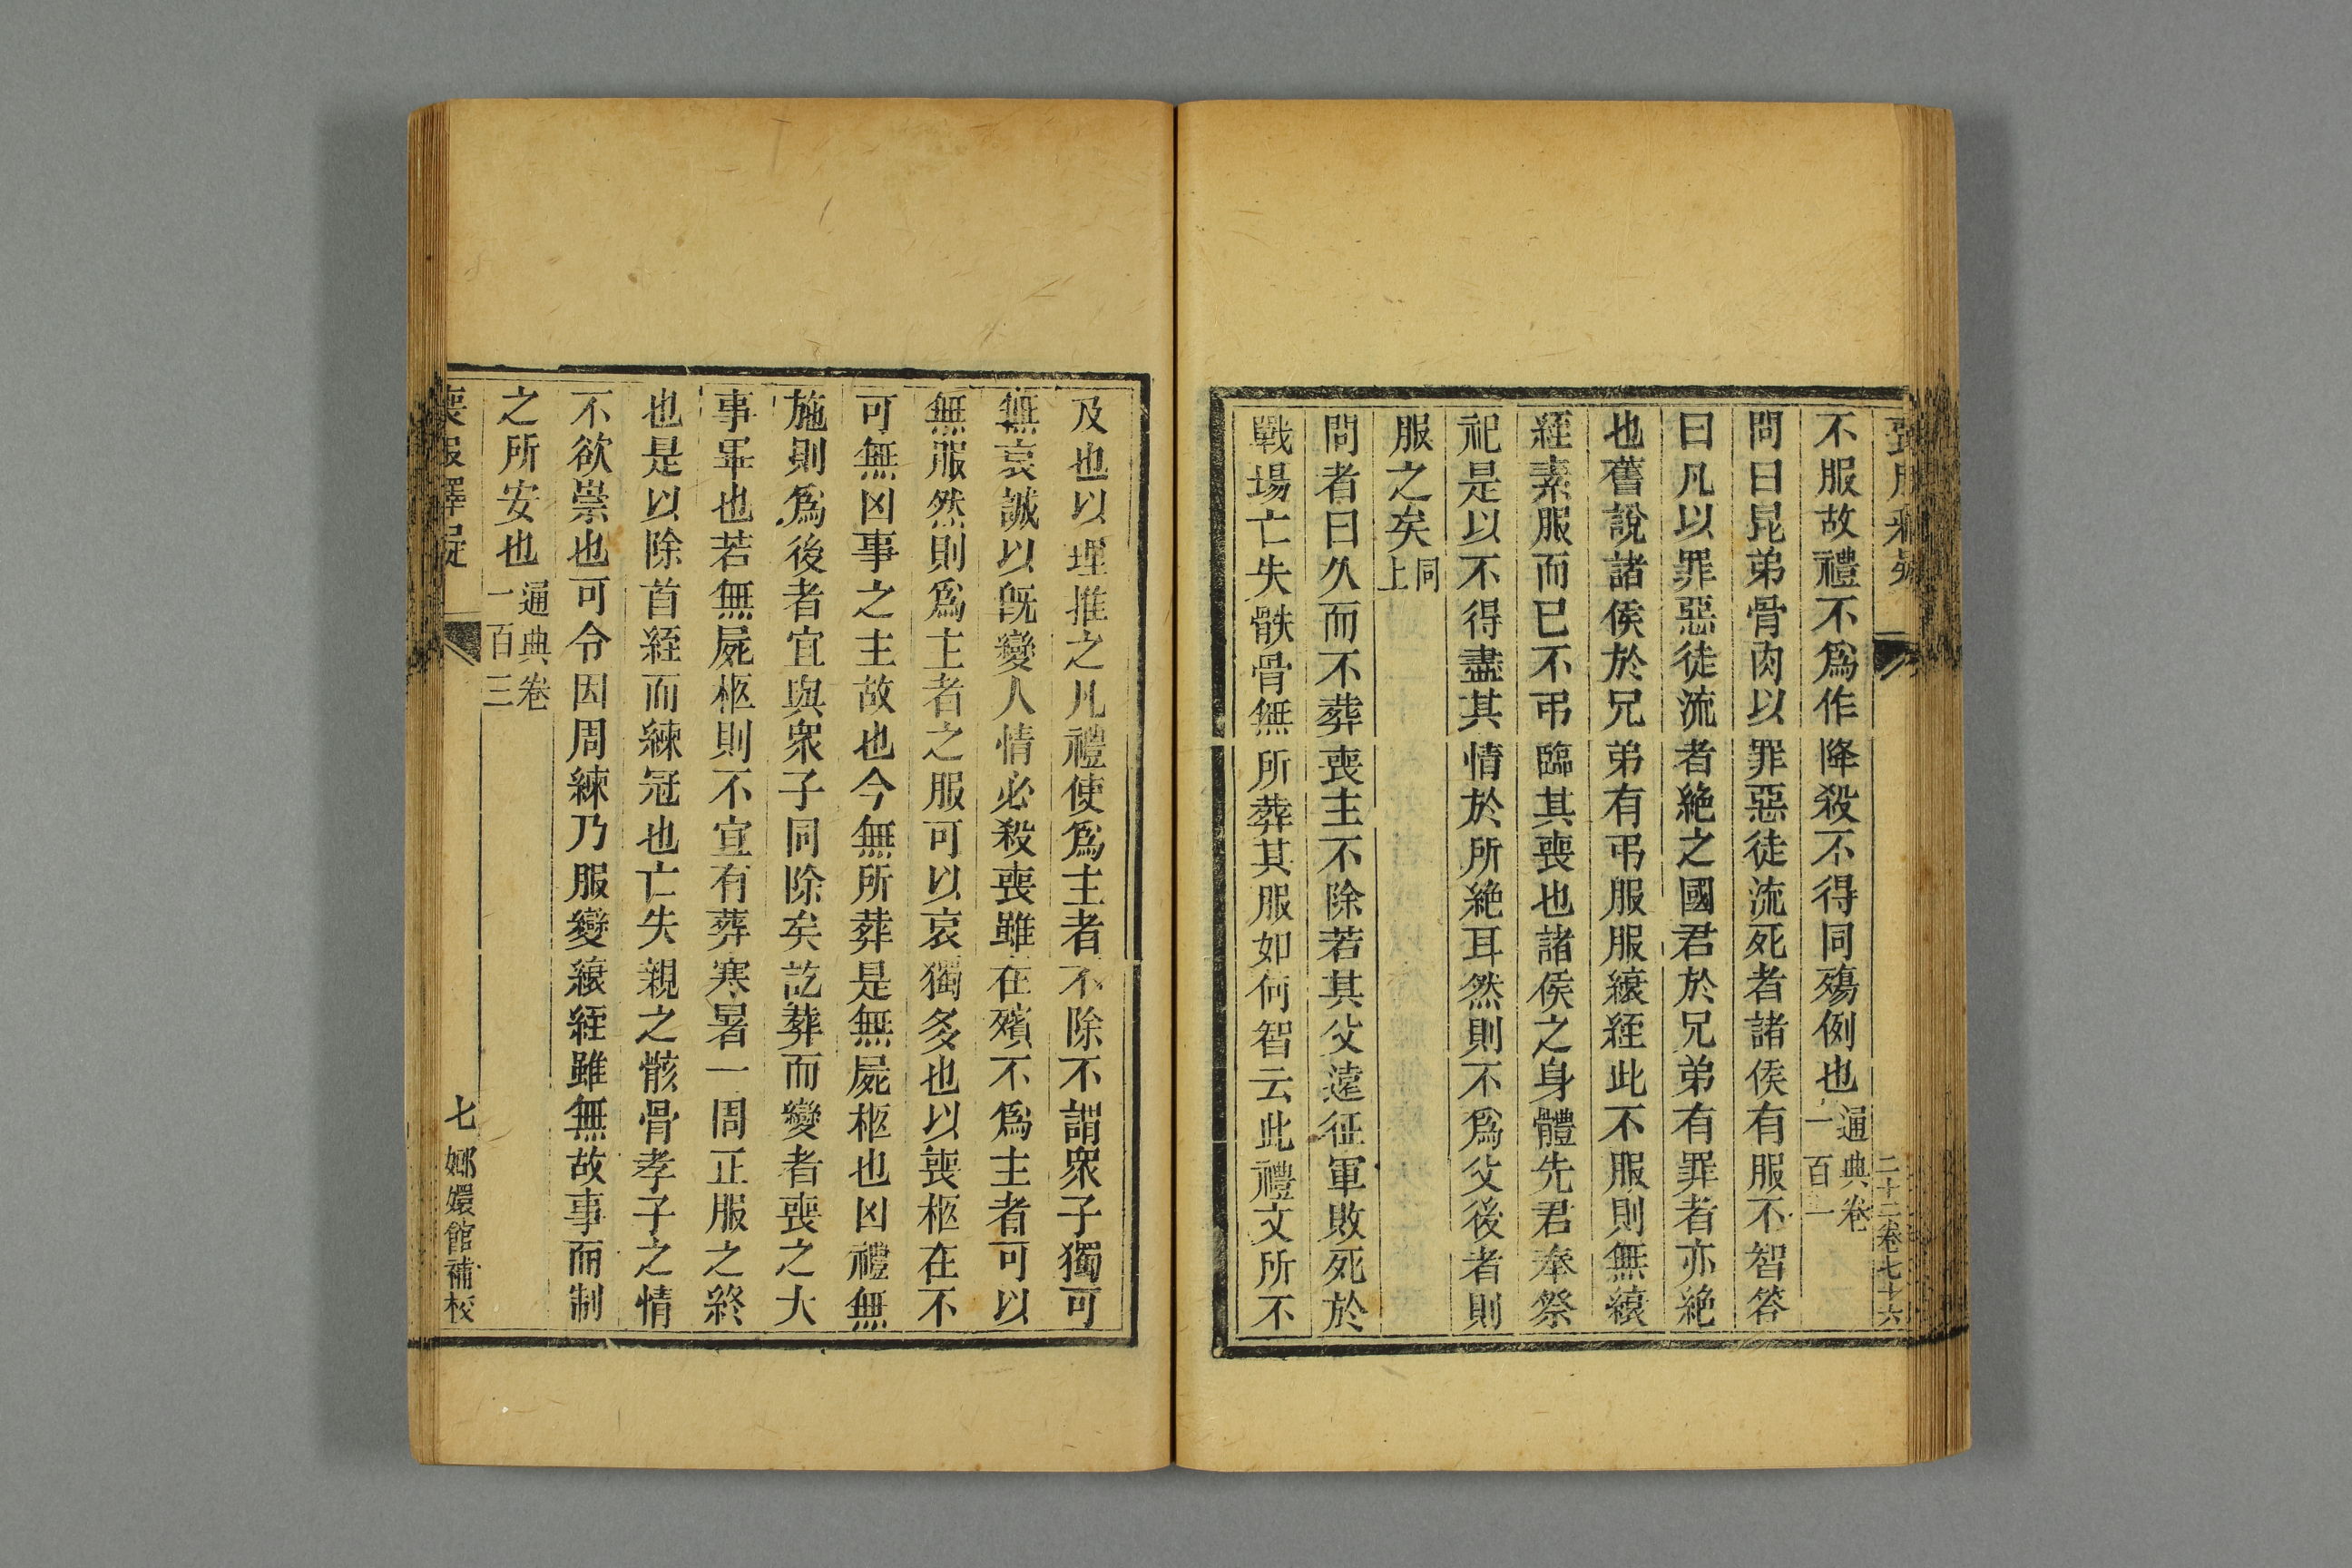 二十二卷七十六
不服故禮不爲作降殺不得同殤例也通典卷一百一
問曰昆弟骨肉以罪惡徒流死者諸侯有服不智答
曰凡以罪惡徒流者絶之國君於兄弟有罪者亦絶
也舊說諸侯於兄弟有弔服服縗絰此不服則無縗
絰素服而已不弔臨其喪也諸侯之身體先君奉祭
祀是以不得盡其情於所絶耳然則不爲父後者則
服之矣同上
問者曰久而不葬喪主不除若其父遠征軍敗死於
戰場亡失骸骨無所葬其服如何智云此禮文所不
及也以理推之凡禮使爲主者不除不謂衆子獨可
無哀誠以旣變人情必殺喪雖在殯不爲主者可以
無服然則爲主者之服可以哀獨多也以喪柩在不
可無凶事之主故也今無所葬是無屍柩也凶禮無
施則爲後者宜與衆子同除矣訖葬而變者喪之大
事畢也若無屍柩則不宜有葬寒暑一周正服之終
也是以除首絰而練冠也亡失親之骸骨孝子之情
不欲崇也可令因周練乃服變縗絰雖無故事而制
之所安也通典卷一百三
喪服釋疑
七 嫏嬛館補校